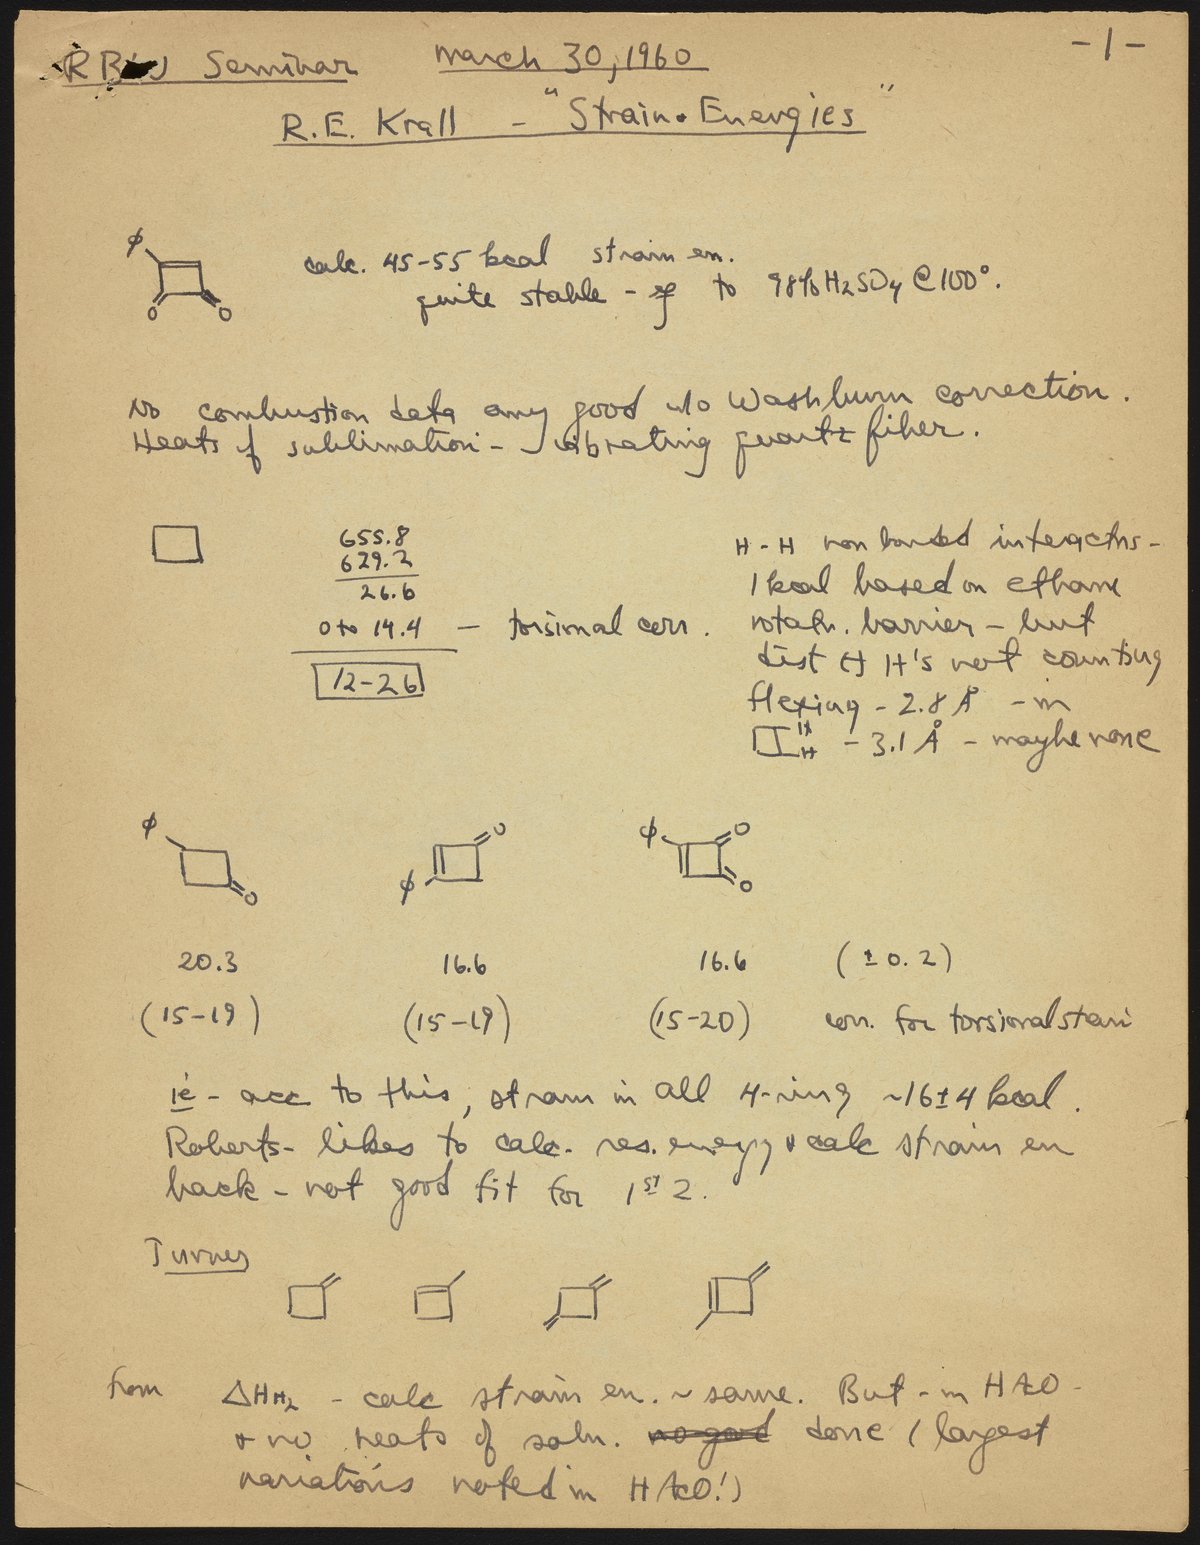 RBW Seminar March 30, 1960 -1-
R.E. Krall - "Strain Energies"
φ
O O
calc. 45-55 kcal strain en.
quite stable - to 98% H2SO4 @ 100°.
No combustion data any good w/o Washburn correction.
Heats of sublimation - vibrating quartz fiber.
655.8
629.2
26.6
0 to 14.4 - torsional corr.
12-26
H-H non bonded interactns -
1 kcal based on ethane
rotatn. barrier - but
dist H H's not counting
flexing - 2.8 Å - in
H
H - 3.1 Å - maybe none
φ O φ O φ O O
20.3 16.6 16.6 (± 0.2)
(15-19) (15-19) (15-20) corr. for torsional strain
ie - acc to this, strain in all 4-ring ~16±4 kcal.
Roberts - likes to calc. res. energy & calc strain en
back - not good fit for 1st 2.
Turner
from ΔHH2 - calc strain en. ~ same. But - in HAcO -
& no heats of soln. no good done (largest
variations noted in HAcO!)